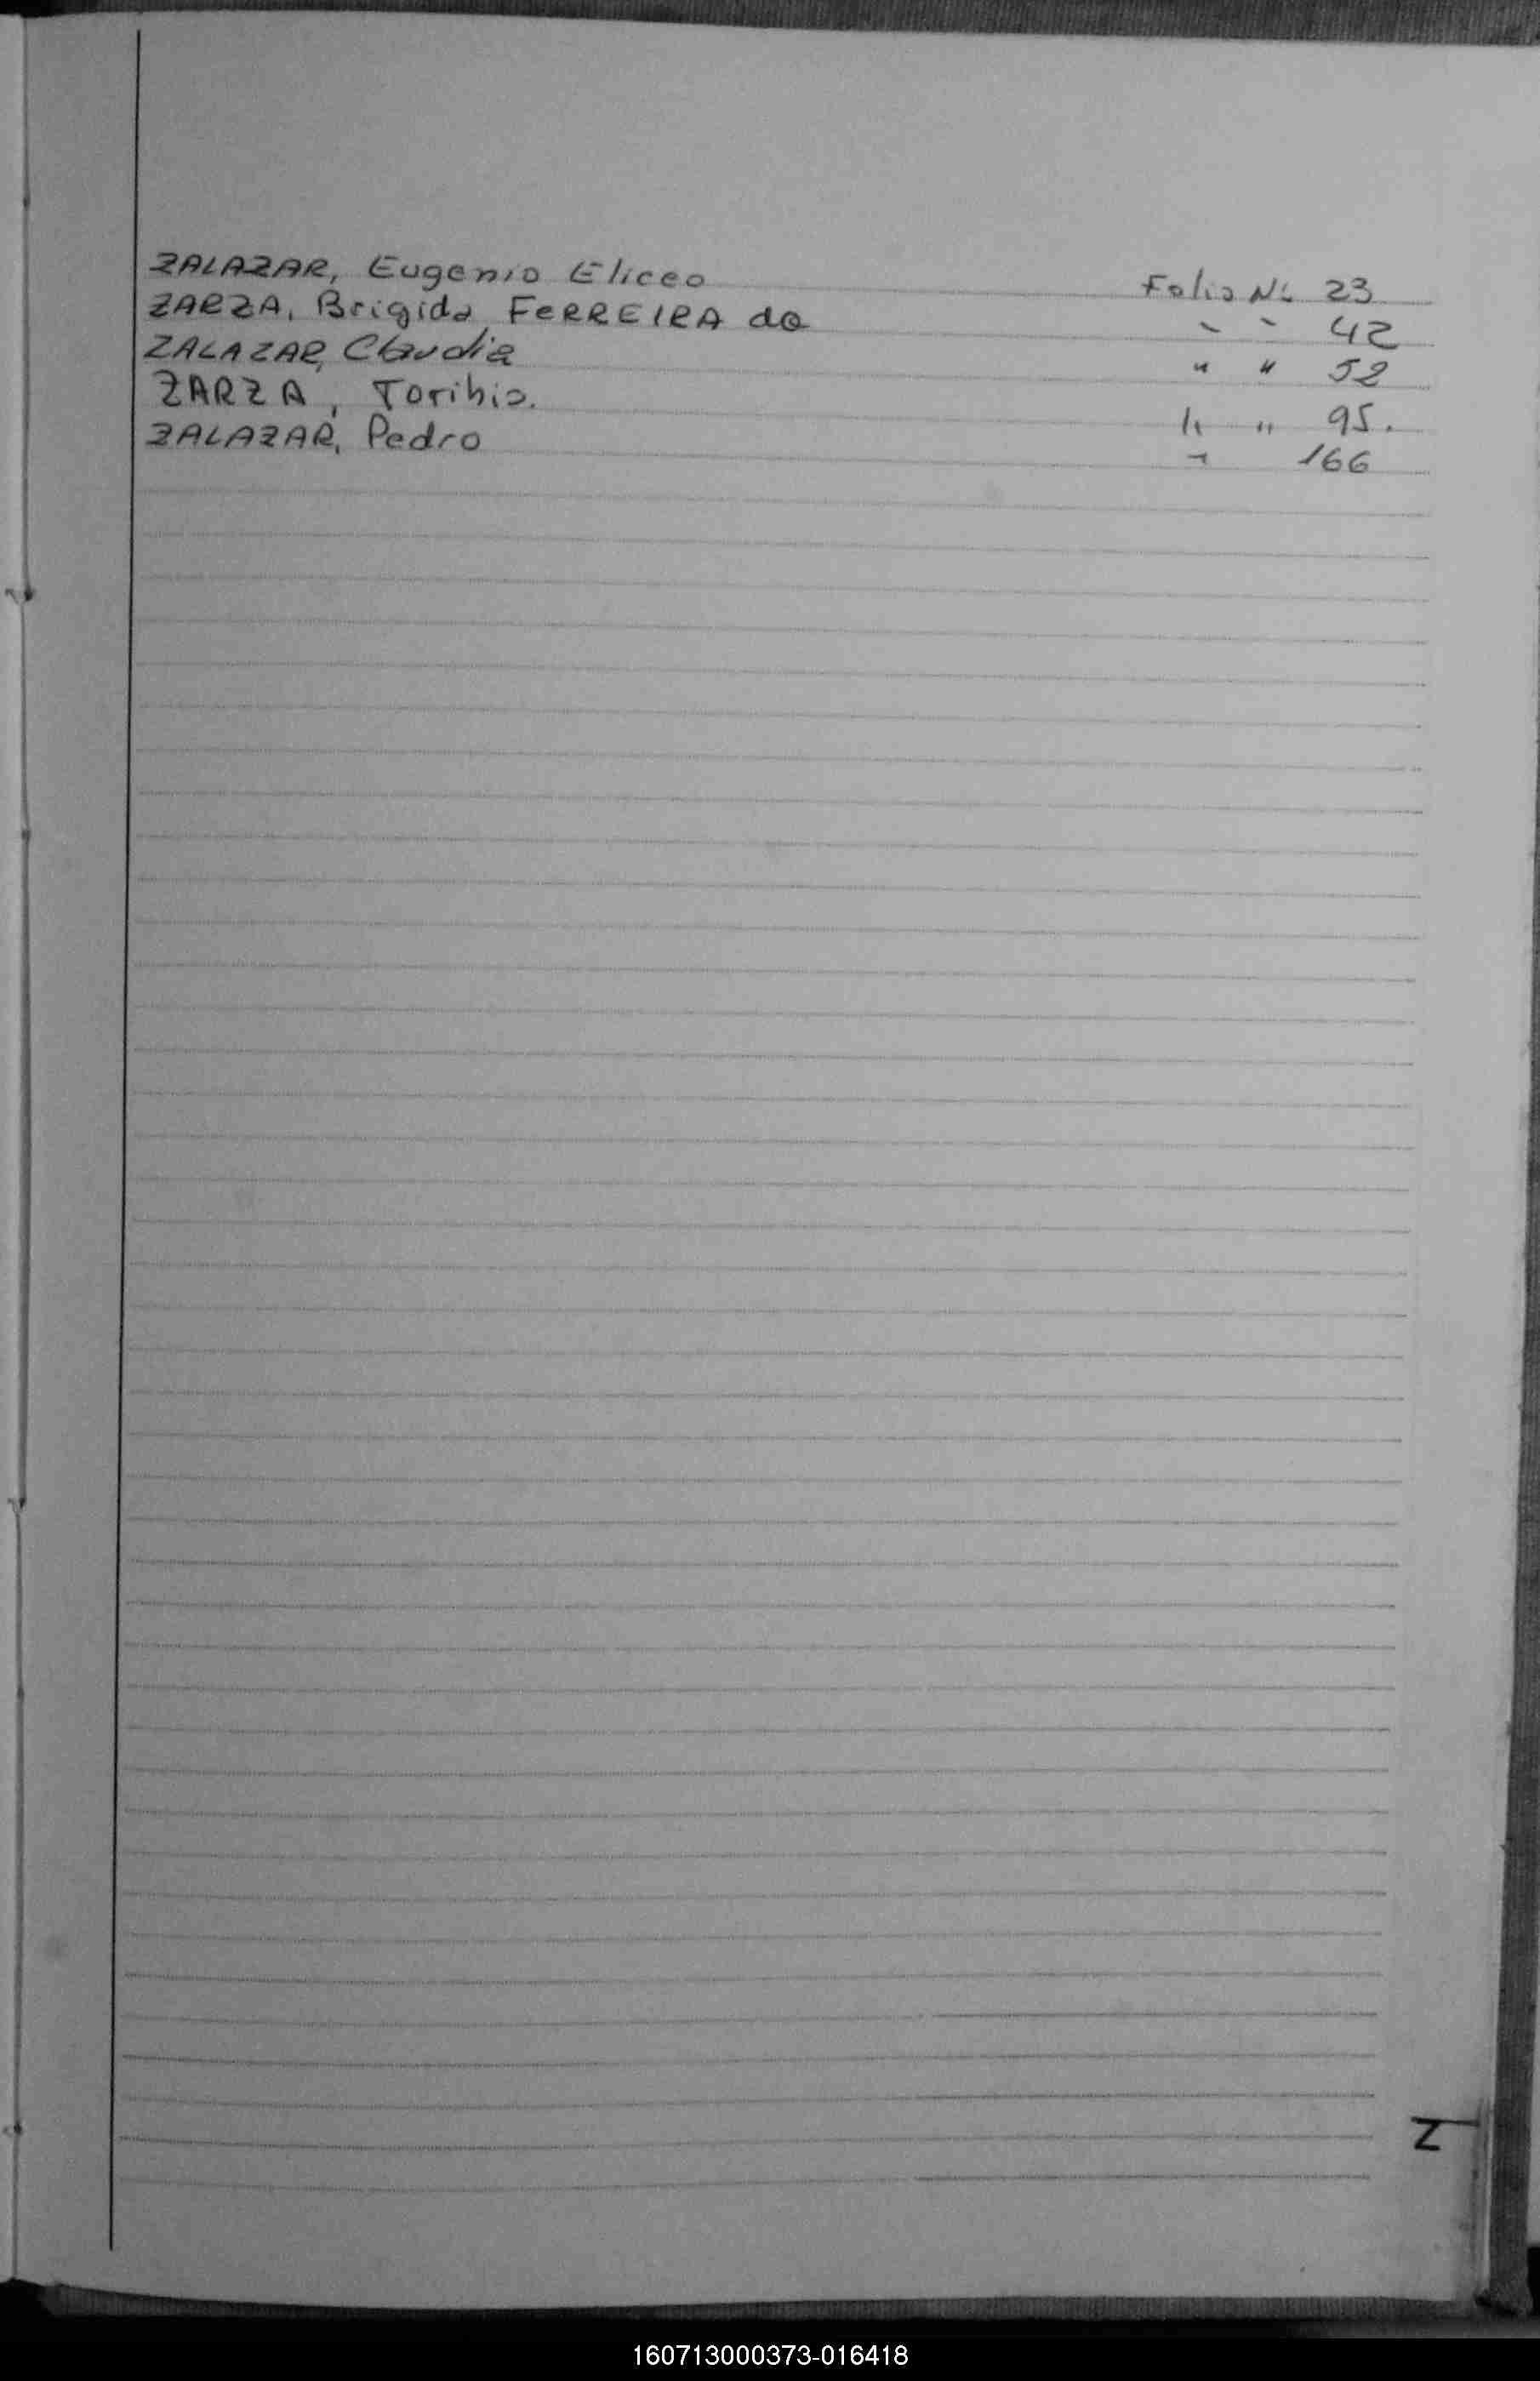 ZALAZAR, Eugenio Eliceo Folio N: 23
ZARZA, Brigida FERREIRA de " " 42
ZALAZAR, Claudia " " 52
ZARZA, Toribio. " " 95.
ZALAZAR, Pedro " 166
Z
160713000373-016418